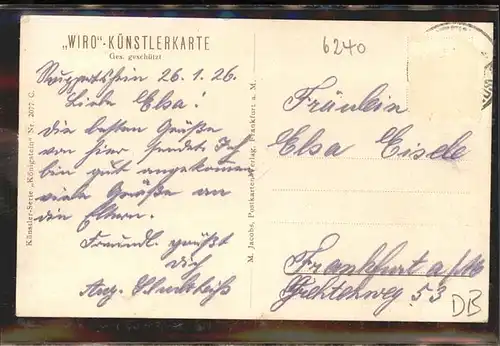 „WIRO"-KÜNSTLERKARTE
Ges. geschützt
26.1.26.
Liebe Elsa!
Die besten Grüße
von hier sendet Ich
bin gut angekommen
viele Grüße an
die Eltern.
Freundl. grüßt
Dich
Aug.
Künstler-Serie „Königstein" Nr. 2077 C.
M. Jacobs, Postkarten-Verlag, Frankfurt a. M.
6240
Fräulein
Elsa Eisele
Frankfurt a/M
53
DB